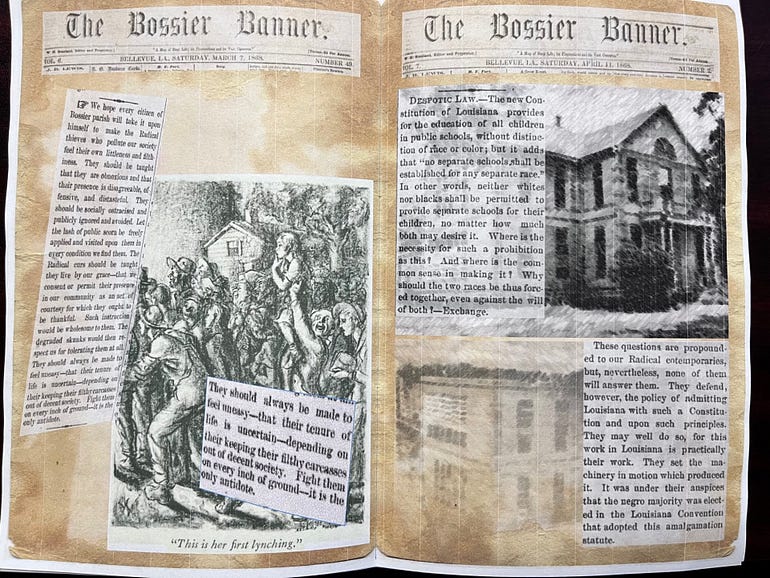 The Bossier Banner.
"A Map of Busy Life, its Fluctuations and its Vast Concerns."
VOL. 6.
BELLEVUE, LA., SATURDAY, MARCH 7, 1868.
NUMBER 49.
We hope every citizen of
Bossier parish will take it upon
himself to make the Radical
thieves who pollute our society
feel their own littleness and filth
iness. They should be taught
that they are obnoxious and that
their presence is disagreeable, of
fensive, and distasteful. They
should be socially ostracised and
publicly ignored and avoided. Let
the lash of public scorn be freely
applied and visited upon them in
every condition we find them. The
Radical curs should be taught
they live by our grace—that we
consent or permit their presence
in our community as an act of
courtesy for which they ought to
be thankful. Such instruction
would be wholesome to them. The
degraded skunks would then re
spect us for tolerating them at all.
They should always be made to
feel uneasy—that their tenure of
life is uncertain—depending on
their keeping their filthy carcasses
out of decent society. Fight them
on every inch of ground—it is the
only antidote.
They should always be made to
feel uneasy—that their tenure of
life is uncertain—depending on
their keeping their filthy carcasses
out of decent society. Fight them
on every inch of ground—it is the
only antidote.
"This is her first lynching."
The Bossier Banner.
"A Map of Busy Life, its Fluctuations and its Vast Concerns."
VOL. 7.
BELLEVUE, LA., SATURDAY, APRIL 11, 1868.
NUMBER 2.
DESPOTIC LAW.—The new Con-
stitution of Louisiana provides
for the education of all children
in public schools, without distinc-
tion of race or color; but it adds
that "no separate schools shall be
established for any separate race."
In other words, neither whites
nor blacks shall be permitted to
provide separate schools for their
children, no matter how much
both may desire it. Where is the
necessity for such a prohibition
as this? And where is the com-
mon sense in making it? Why
should the two races be thus forc-
ed together, even against the will
of both?—Exchange.
These questions are propound-
ed to our Radical cotemporaries,
but, nevertheless, none of them
will answer them. They defend,
however, the policy of admitting
Louisiana with such a Constitu-
tion and upon such principles.
They may well do so, for this
work in Louisiana is practically
their work. They set the ma-
chinery in motion which produced
it. It was under their auspices
that the negro majority was elect-
ed in the Louisiana Convention
that adopted this amalgamation
statute.